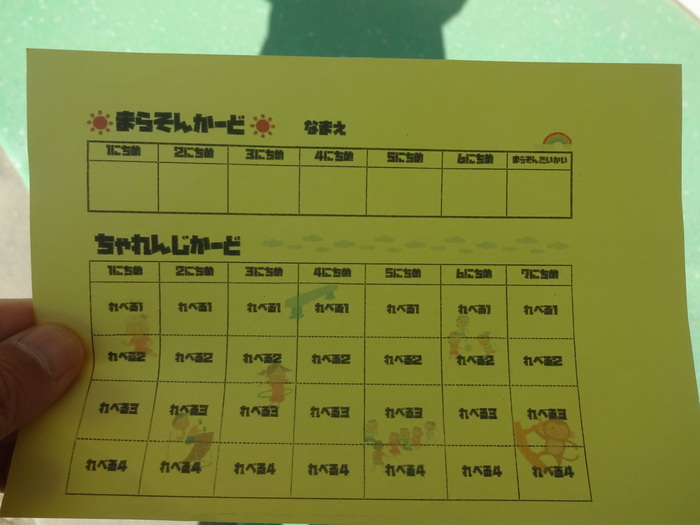 まらそんかーど なまえ
1にちめ 2にちめ 3にちめ 4にちめ 5にちめ 6にちめ まらそんたいかい
ちゃれんじかーど
1にちめ 2にちめ 3にちめ 4にちめ 5にちめ 6にちめ 7にちめ
れべる1 れべる1 れべる1 れべる1 れべる1 れべる1 れべる1
れべる2 れべる2 れべる2 れべる2 れべる2 れべる2 れべる2
れべる3 れべる3 れべる3 れべる3 れべる3 れべる3 れべる3
れべる4 れべる4 れべる4 れべる4 れべる4 れべる4 れべる4